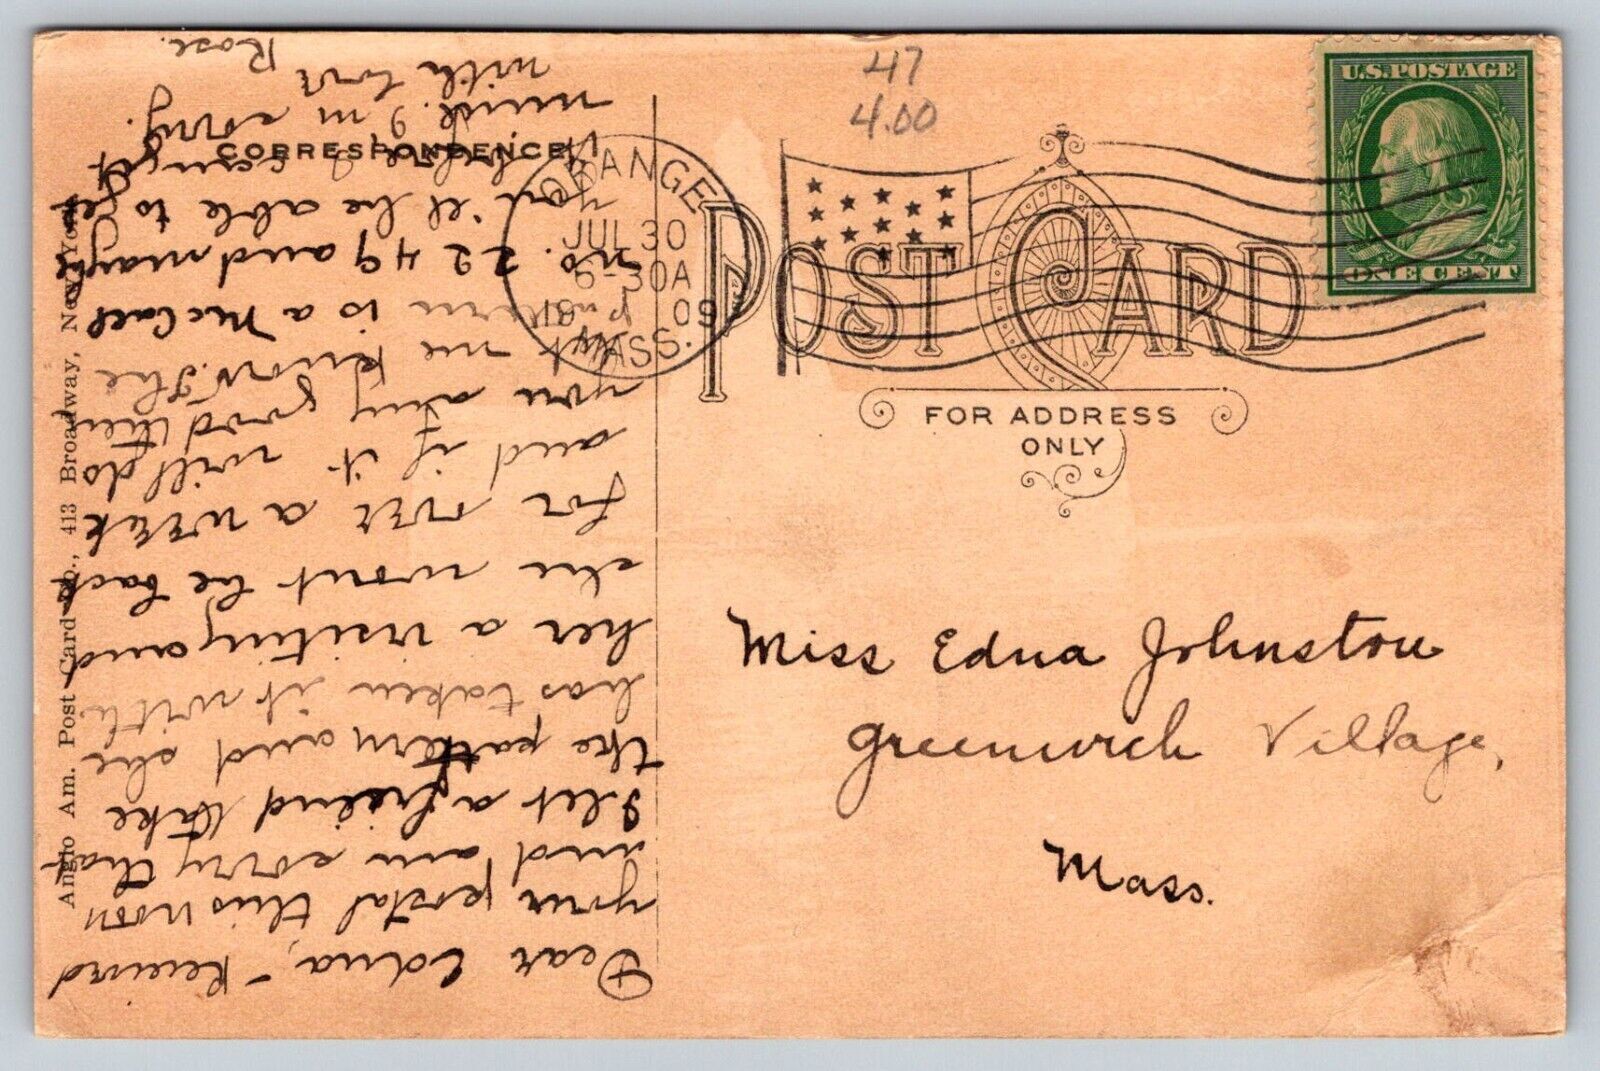 47
4.00
CORRESPONDENCE
ORANGE
JUL 30
30A
19 09
MASS.
U.S. POSTAGE
ONE CENT
POST CARD
FOR ADDRESS
ONLY
Miss Edna Johnston
Greenwich Village,
Mass.
Dear Edna, Received
your postal this noon
and am sorry that
I let a freind take
the pattern and she
has taken it with
her a visiting and
she wont be back
for over a week
and if it will do
you any good then
let me know. The
pattern is a McCall
No. 2249 and maybe
you'll be able to get
before I can get
mine. I'm sorry.
with love
Rose.
Anglo Am. Post Card Co., 413 Broadway, New York